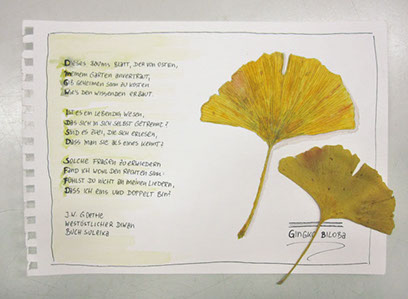 Dieses Baums Blatt, der von Osten,
Meinem Garten anvertraut,
Gibt geheimen Sinn zu kosten
Wie's den Wissenden erbaut.
Ist es ein lebendig Wesen,
Das sich in sich selbst getrennt?
Sind es zwei, die sich erlesen,
Dass man sie als eines kennt?
Solche Fragen zu erwidern
Fand ich wohl den rechten Sinn.
Fühlst du nicht an meinen Liedern,
Dass ich eins und doppelt bin?
J.W. Goethe
Westöstlicher Diwan
Buch Suleika
Gingko Biloba